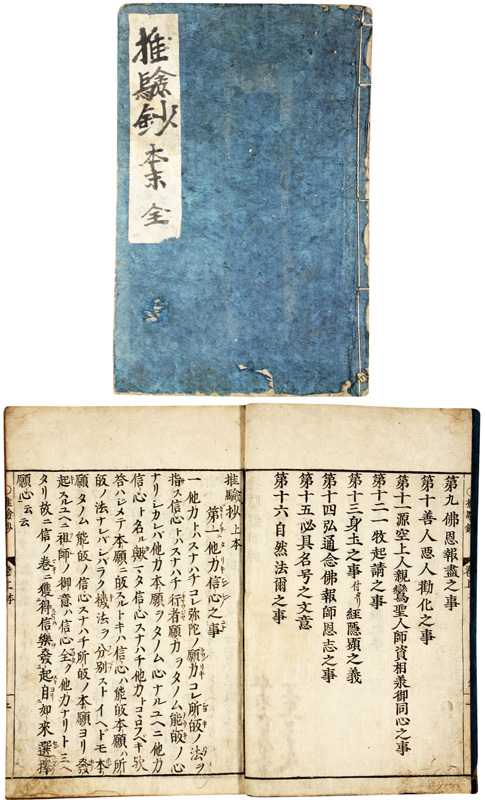 推驗鈔本末 全
第九 佛恩報盡之事
第十 善人惡人勸化之事
第十一 源空上人親鸞聖人師資相承御同心之事
第十二 一枚起請之事
第十三 身玉之事 付タリ 經隱顕之義
第十四 弘通念佛報師恩志之事
第十五 必具名号之文意
第十六 自然法爾之事
推驗抄上本
第一 他力信心之事
一他力トハスナハチコレ弥陀ノ願力コレ所皈ノ法ヲ
指ス信心トハスナハチ行者願力ヲタノム能皈ノ心
ナリシカレハ他力本願ヲタノム心ナルユヘニ他力
信心ト名ル歟マタ信心スナハチ他力トコロウヘキ歟
答ハジメテ本願ニ皈スルトキハ信心ハ能皈本願ハ所
皈ノ法ナレバシバラク機法ヲ分別ストイヘドモ本
願タノム能皈ノ信心スナハチ所皈ノ本願ヨリ發
起スルユヘニ祖師ノ御意ハ信心全ク他力ナリト云ヘ
タリ故ニ信ノ卷ニ獲得信樂發起自如來選擇
願心云云